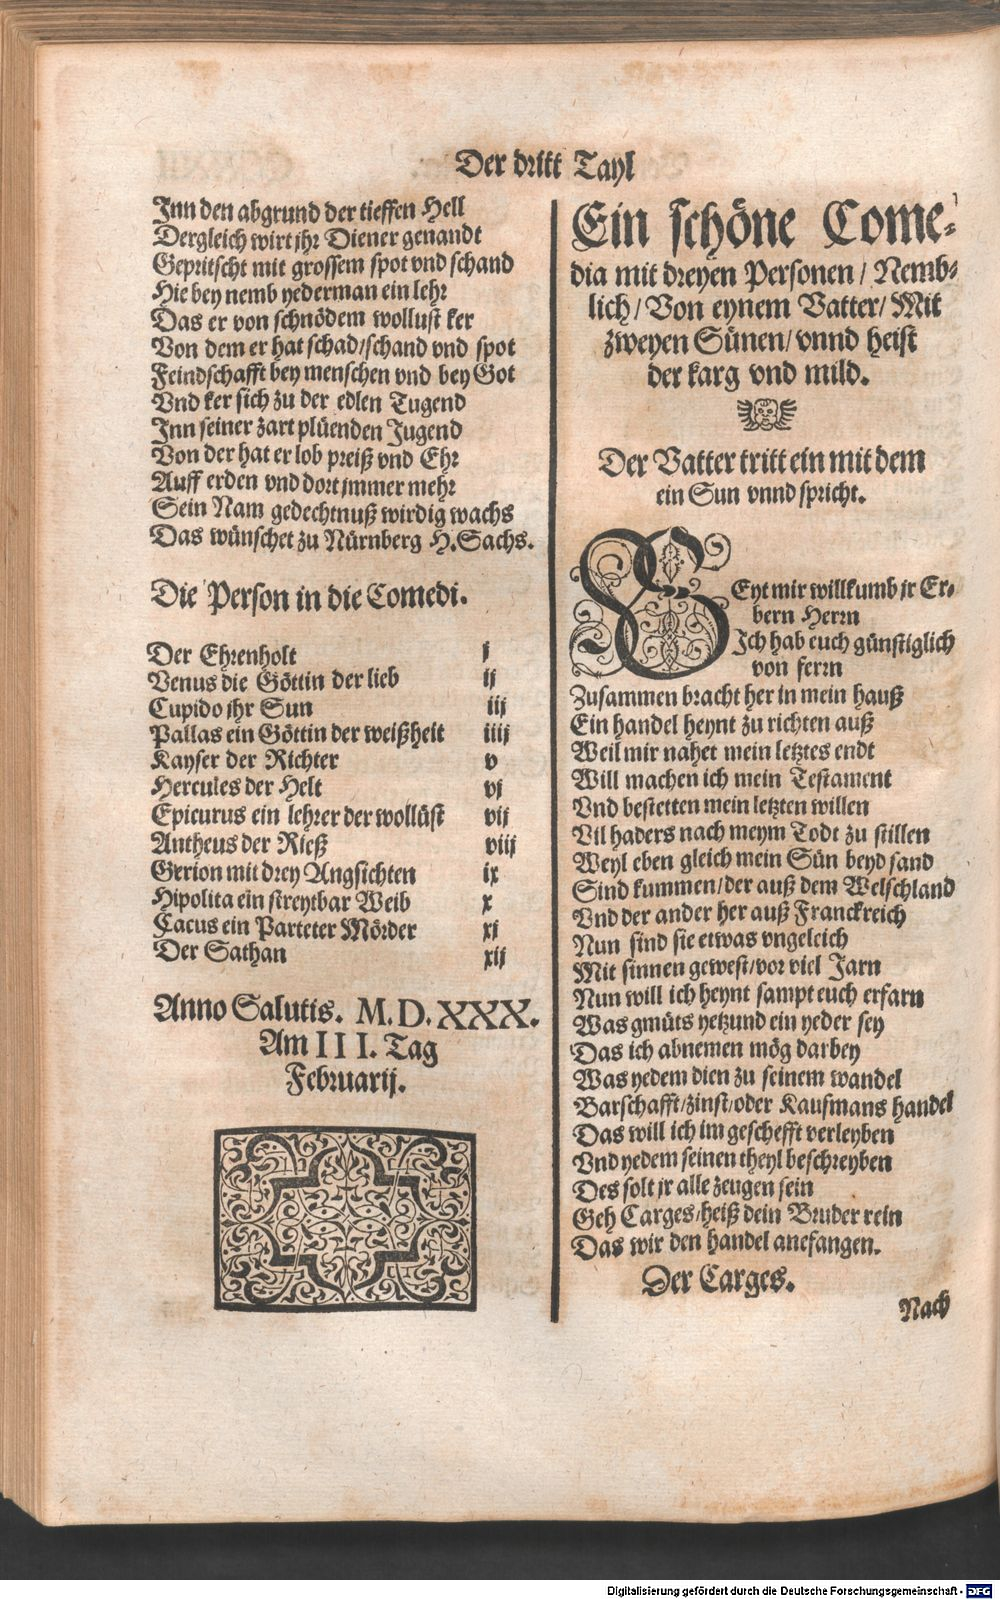 Der dritt Tayl
Inn den abgrund der tieffen Hell
Dergleich wirt jhr Diener genandt
Gepritscht mit grossem spot vnd schand
Hie bey nemb yederman ein lehr
Das er von schnödem wollust ker
Von dem er hat schad/schand vnd spot
Feindschafft bey menschen vnd bey Got
Vnd ker sich zu der edlen Tugend
Inn seiner zart plüenden Jugend
Von der hat er lob preiß vnd Ehr
Auff erden vnd dort jmmer mehr
Sein Nam gedechtnuß wirdig wachs
Das wünschet zu Nürnberg H.Sachs.
Die Person in die Comedi.
Der Ehrenholt j
Venus die Göttin der lieb ij
Cupido jhr Sun iij
Pallas ein Göttin der weißheit iiij
Kayser der Richter v
Hercules der Helt vj
Epicurus ein lehrer der wollüst vij
Antheus der Rieß viij
Gerion mit drey Angsichten ix
Hipolita ein streytbar Weib x
Cacus ein Parteter Mörder xj
Der Sathan xij
Anno Salutis. M.D.XXX.
Am III. Tag
Februarij.
Ein schöne Come-
dia mit dreyen Personen / Nemb-
lich/ Von eynem Vatter/ Mit
zweyen Sünen/ vnnd heist
der karg vnd mild.
Der Vatter tritt ein mit dem
ein Sun vnnd spricht.
SEyt mir willkumb jr Er-
bern Herrn
Ich hab euch günstiglich
von ferrn
Zusammen bracht her in mein hauß
Ein handel heynt zu richten auß
Weil mir nahet mein letztes endt
Will machen ich mein Testament
Vnd bestetten mein letzten willen
Vil haders nach meym Todt zu stillen
Weyl eben gleich mein Sün beyd sand
Sind kummen/der auß dem Welschland
Vnd der ander her auß Franckreich
Nun sind sie etwas vngeleich
Mit sinnen gewest/vor viel Jarn
Nun will ich heynt sampt euch erfarn
Was gmüts yetzund ein yeder sey
Das ich abnemen mög darbey
Was yedem dien zu seinem wandel
Barschafft/zinst/oder Kaufmans handel
Das will ich im geschefft verleyben
Vnd yedem seinen theyl beschreyben
Des solt jr alle zeugen sein
Geh Carges/heiß dein Bruder rein
Das wir den handel anefangen.
Der Carges.
Nach
Digitalisierung gefördert durch die Deutsche Forschungsgemeinschaft - DFG